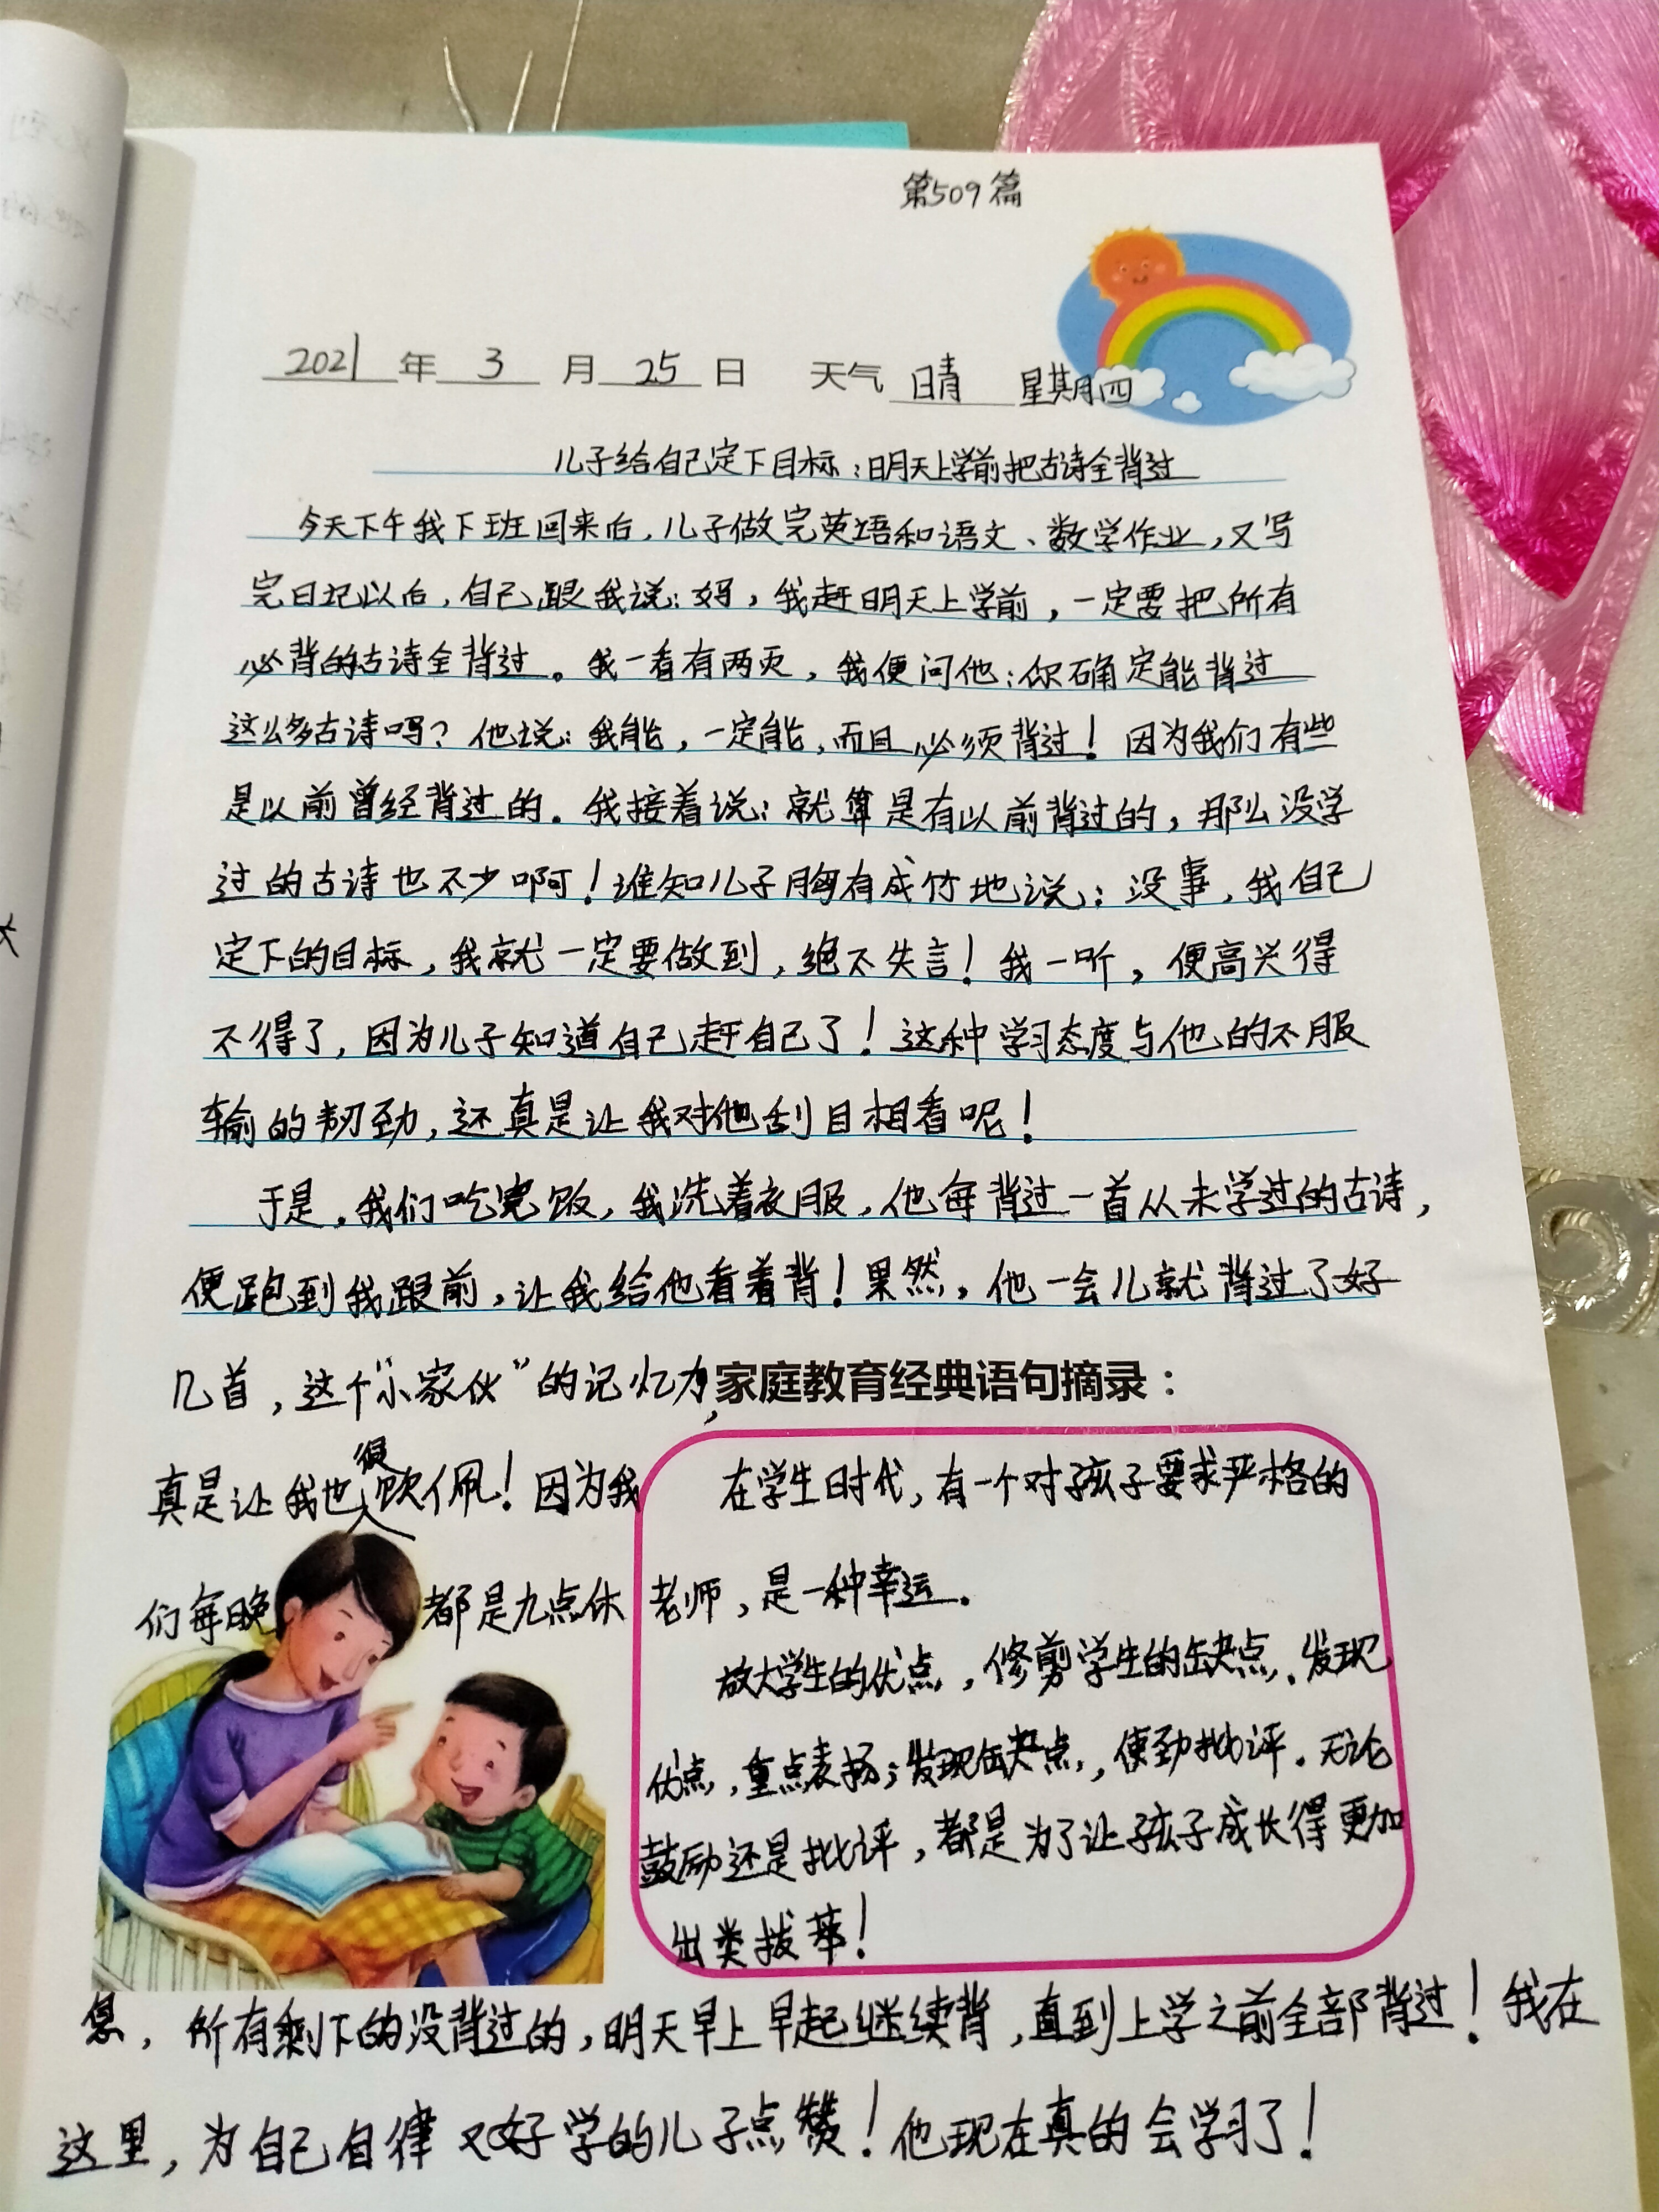 第509篇
2021年 3 月 25 日 天气 晴 星期四
儿子给自己定下目标:明天上学前把古诗全背过
今天下午我下班回来后,儿子做完英语和语文、数学作业,又写
完日记以后,自己跟我说:妈,我赶明天上学前,一定要把所有
必背的古诗全背过。我一看有两页,我便问他:你确定能背过
这么多古诗吗?他说:我能,一定能,而且必须背过!因为我们有些
是以前曾经背过的。我接着说:就算是有以前背过的,那么没学
过的古诗也不少啊!谁知儿子胸有成竹地说:没事,我自己
定下的目标,我就一定要做到,绝不失言!我一听,便高兴得
不得了,因为儿子知道自己赶自己了!这种学习态度与他的不服
输的韧劲,还真是让我对他刮目相看呢!
于是,我们吃完饭,我洗着衣服,他每背过一首从未学过的古诗,
便跑到我跟前,让我给他看着背!果然,他一会儿就背过了好
几首,这个“小家伙”的记忆力,
真是让我也很钦佩!因为我
们每晚都是九点休
家庭教育经典语句摘录:
在学生时代,有一个对孩子要求严格的
老师,是一种幸运。
放大学生的优点,修剪学生的缺点,发现
优点,重点表扬;发现缺点,使劲批评。无论
鼓励还是批评,都是为了让孩子成长得更加
出类拔萃!
息,所有剩下的没背过的,明天早上早起继续背,直到上学之前全部背过!我在
这里,为自己自律又好学的儿子点赞!他现在真的会学习了!